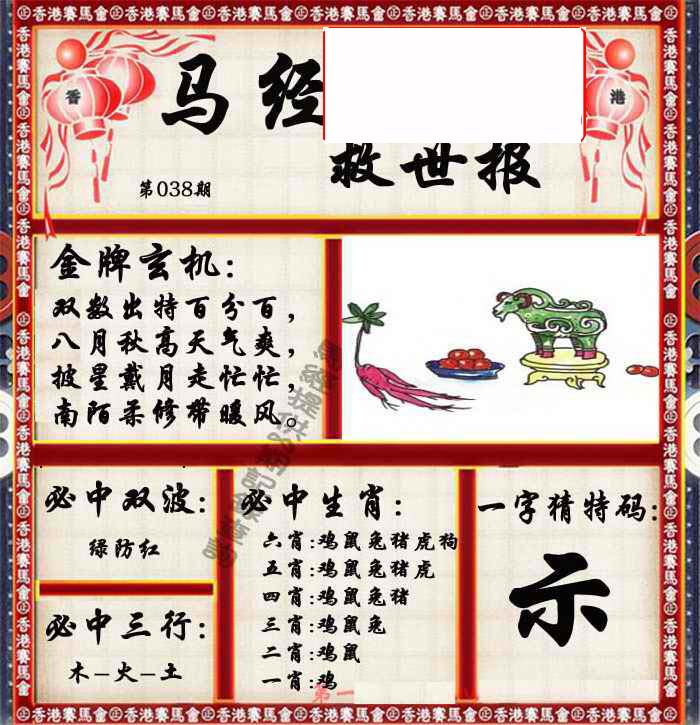 香港賽馬會㊣香港賽馬會㊣香港賽馬會㊣香港賽馬會㊣香港賽馬會
香
港
马经
救世报
第038期
金牌玄机:
双数出特百分百,
八月秋高天气爽,
披星戴月走忙忙,
南陌柔修带暖风。
必中双波:
绿防红
必中三行:
木-火-土
必中生肖:
六肖:鸡鼠兔猪虎狗
五肖:鸡鼠兔猪虎
四肖:鸡鼠兔猪
三肖:鸡鼠兔
二肖:鸡鼠
一肖:鸡
第一
一字猜特码:
示